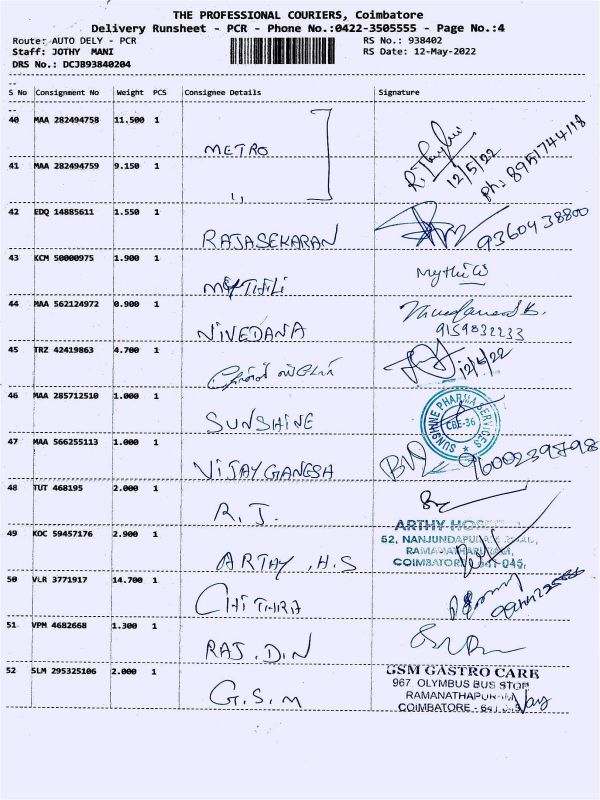 THE PROFESSIONAL COURIERS, Coimbatore
Delivery Runsheet - PCR - Phone No.:0422-3505555 - Page No.:4
Route: AUTO DELY - PCR RS No.: 938402
Staff: JOTHY MANI RS Date: 12-May-2022
DRS No.: DCJB93840204
S No Consignment No Weight PCS Consignee Details Signature
40 MAA 282494758 11.500 1 METRO
41 MAA 282494759 9.150 1 ,, 12/5/22 ph: 8951744118
42 EDQ 14885611 1.550 1 RAJASEKARAN 9360438800
43 KCM 50000975 1.900 1 MYTHILI
44 MAA 562124972 0.900 1 NIVEDANA 9159832233
45 TRZ 42419863 4.700 1 12/5/22
46 MAA 285712510 1.000 1 SUNSHINE SUNSHINE PHARMA SERVICES CBE-36
47 MAA 566255113 1.000 1 VIJAY GANGSA 9600239798
48 TUT 468195 2.000 1 R.J.
49 KOC 59457176 2.900 1 ARTHY .H.S ARTHY
52, NANJUNDAPURAM
RAMANATHAPURAM,
COIMBATORE 641-045.
50 VLR 3771917 14.700 1 CHITHRA
51 VPM 4682668 1.300 1 RAJ.DIN
52 SLM 295325106 2.000 1 G.S.M GSM GASTRO CARE
967 OLYMBUS BUS STOP
RAMANATHAPURAM
COIMBATORE - 641